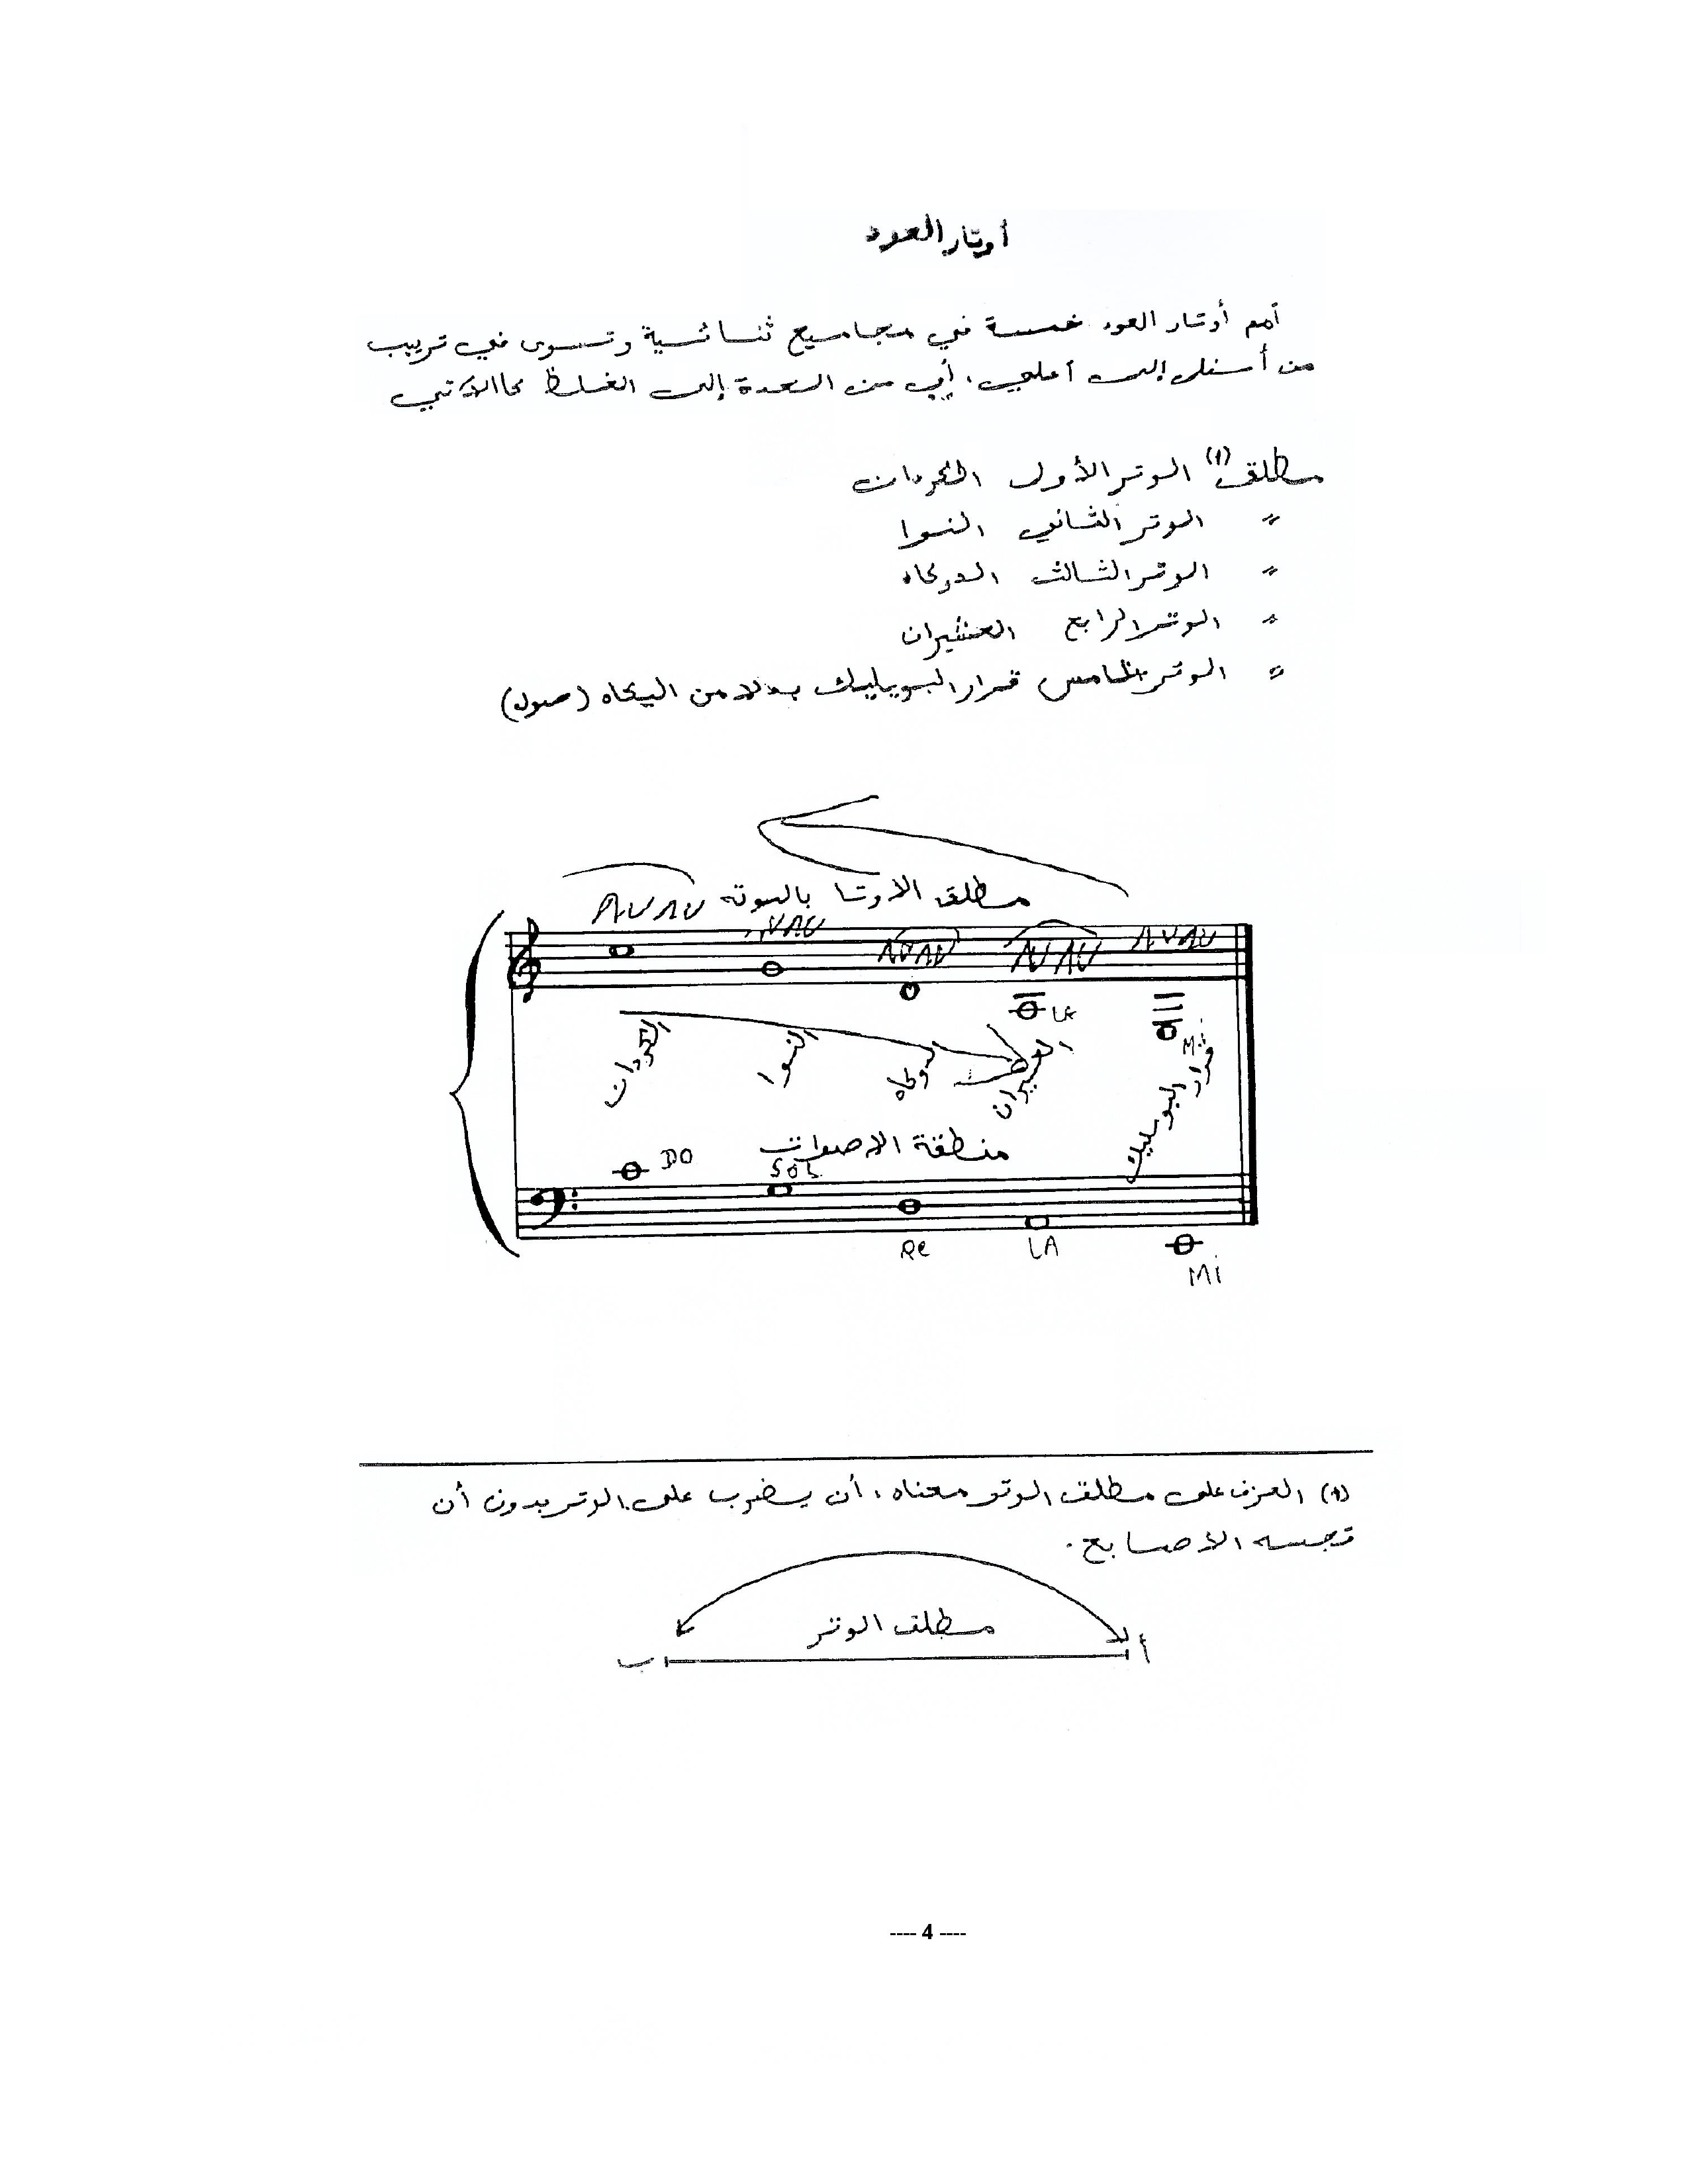 أوتار العود
أهم أوتار العود خمسة في مجاميع ثنائية وتسوى في ترتيب
من أسفل إلى أعلى، أي من الحدة إلى الغلظ كالآتي
مطلق (1) الوتر الأول الكردان
〃 الوتر الثاني النوا
〃 الوتر الثالث الدوكاه
〃 الوتر الرابع العشيران
〃 الوتر الخامس قرار البوسليك بدلا من اليكاه (صول)
مطلق الاوتا بالنوته
ΛVΛV
VΛV
ΛVΛV
ΛVΛV
ΛVΛV
LA
Mi
الكردان
النوا
الدوكاه
العشيران
قرار البوسليك
منطقة الاصوات
DO
SOL
Re
LA
Mi
(1) العزف على مطلق الوتر معناه، أن يضرب على الوتر بدون أن
تجسه الأصابع.
مطلق الوتر
أ
ب
---- 4 ----